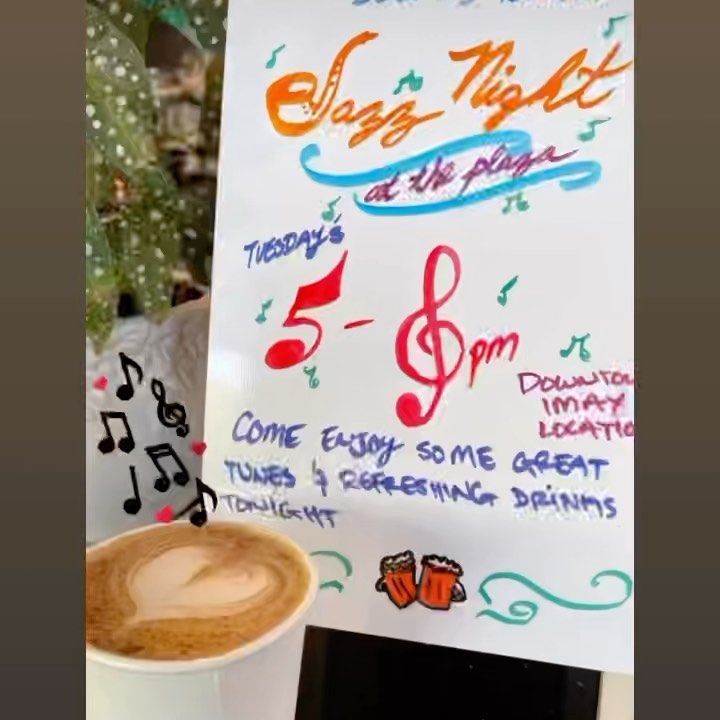 Jazz Night
at the plaza
TUESDAY'S
5 - 8pm
DOWNTOW
IMAX
LOCATIO
COME ENJOY SOME GREAT
TUNES & REFRESHING DRINKS
TONIGHT